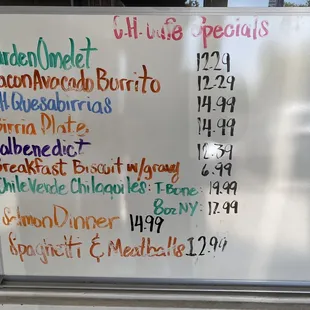 G.H. Cafe Specials
arden Omelet 12.29
acon Avocado Burrito 12.29
H. Quesabirrias 14.99
irria Plate 14.99
albenedict 12.39
reakfast Biscuit w/gravy 6.99
Chile Verde Chilaquiles: T-Bone: 19.99
8oz NY: 17.99
Salmon Dinner 14.99
Spaghetti & Meatballs 12.99